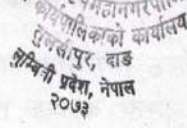 कार्यपालिकाको कार्यालय
तुलसीपुर, दाङ
लुम्बिनी प्रदेश, नेपाल
२०७३